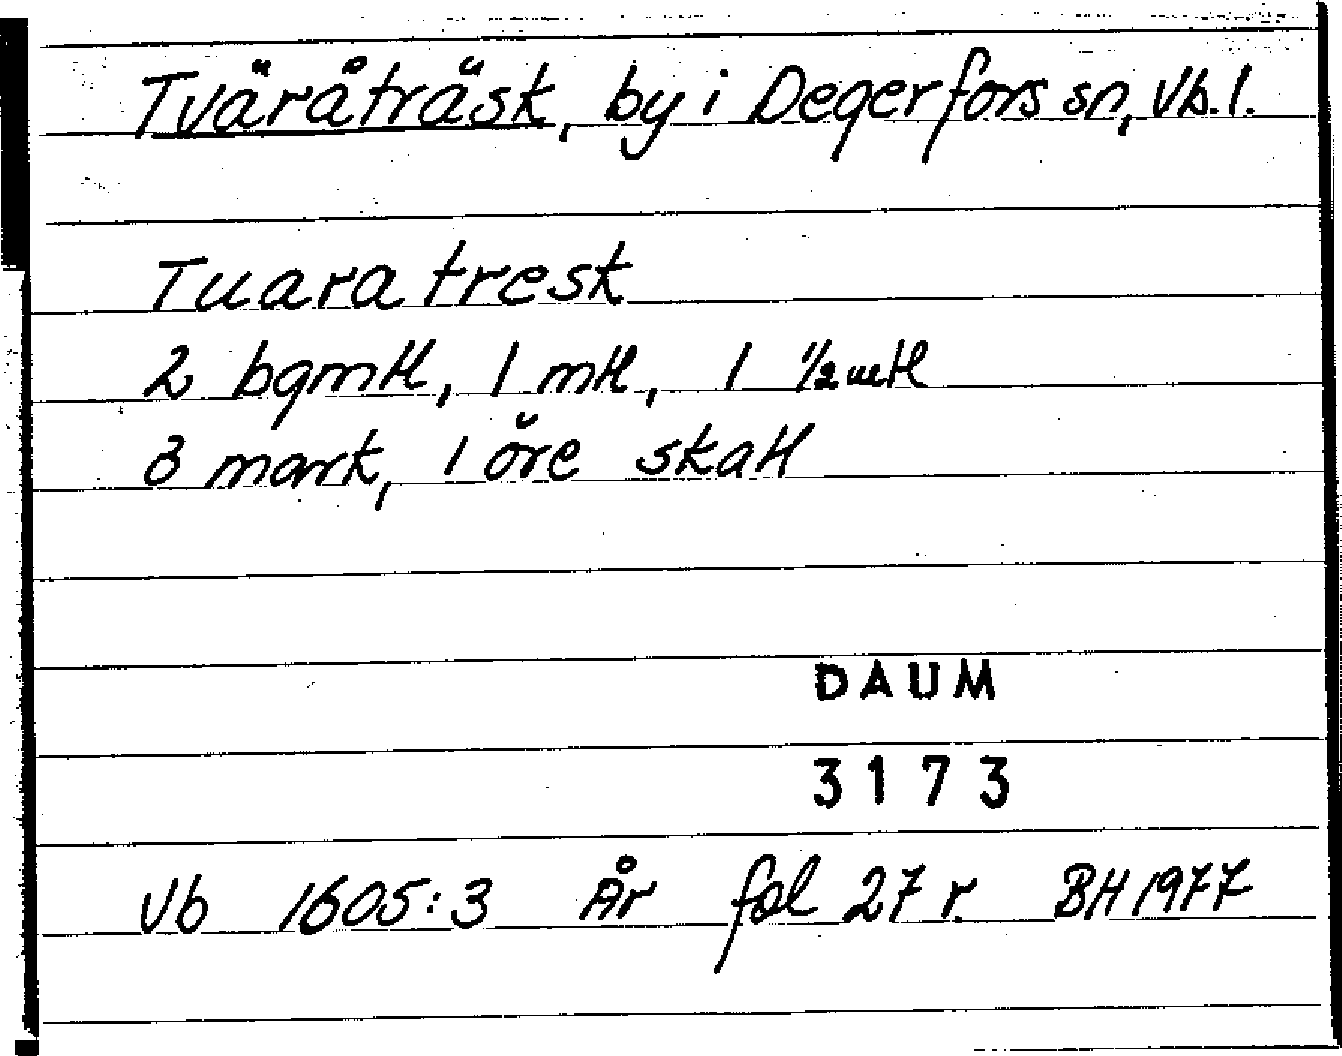 Tväråträsk, by i Degerfors sn, Vb. l.
Tuara trest
2 bgmtl, 1 mtl, 1 ½ mtl
3 mark, 1 öre skatt
DAUM
3173
Vb 1605:3 År fol 27 r. BH 1977